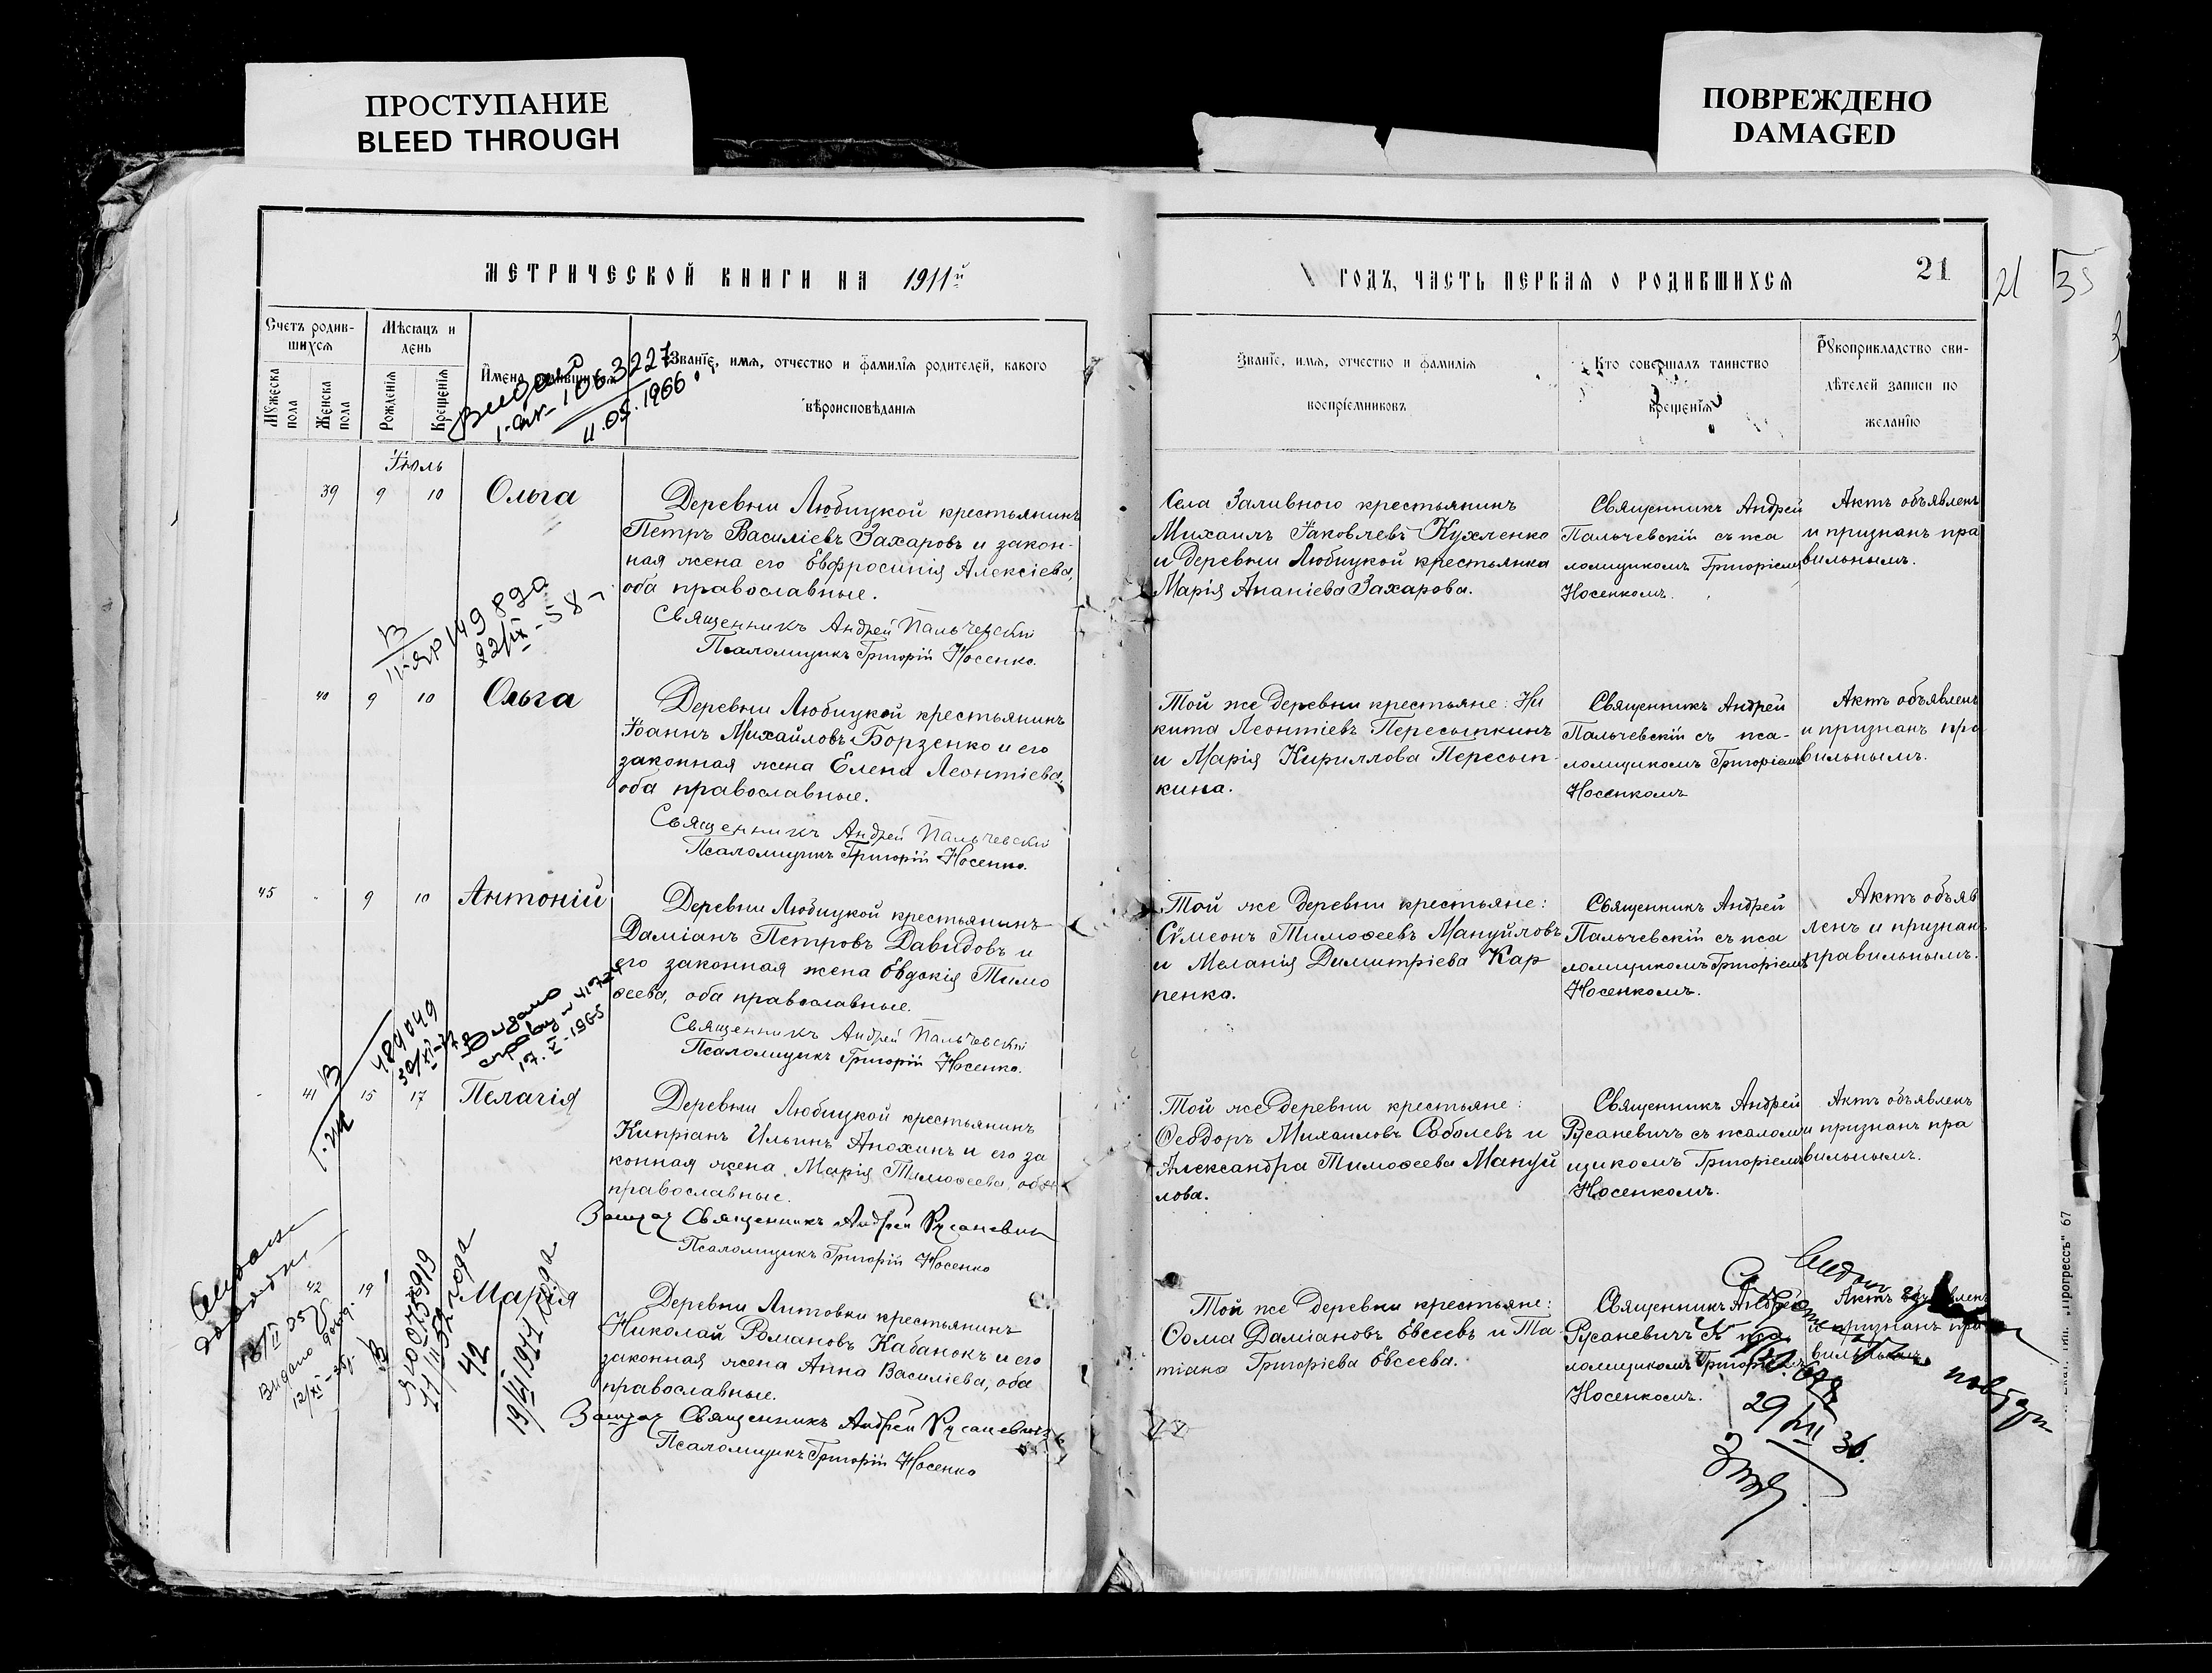 ПРОСТУПАНИЕ
BLEED THROUGH
ПОВРЕЖДЕНО
DAMAGED
МЕТРИЧЕСКОЙ КНИГИ НА 1911й
Счетъ родив-
шихся
Мѣсяцъ и
день
Мужеска
пола
Женска
пола
Рожденія
Крещенія
Имена
Званіе, имя, отчество и фамилія родителей, какого
вѣроисповѣданія
1063227
11.05.1966
Іюль
39 9 10 Ольга
Деревни Любицкой крестьянинъ
Петръ Василіевъ Захаровъ и закон-
ная жена его Евфросинія Алексіева,
оба православные.
Священникъ Андрей Пальчевскій
Псаломщикъ Григорій Носенко.
149890
22/IX-58
40 9 10 Ольга
Деревни Любицкой крестьянинъ
Іоаннъ Михайловъ Борзенко и его
законная жена Елена Леонтіева,
оба православные.
Священникъ Андрей Пальчевскій
Псаломщикъ Григорій Носенко.
45 9 10 Антоній
Деревни Любицкой крестьянинъ
Даміанъ Петровъ Давидовъ и
его законная жена Евдокія Тимо
ѳеева, оба православные.
Священникъ Андрей Пальчевскій
Псаломщикъ Григорій Носенко.
489049
Видано
17.X-1965
41 15 17 Пелагія
Деревни Любицкой крестьянинъ
Кипріанъ Ильинъ Анохинъ и его за
конная жена Марія Тимоѳеева, оба
православные.
Заштат Священникъ Андрей Русаневич
Псаломщикъ Григорій Носенко
42 19 Марія
Деревни Литовки крестьянинъ
Николай Романовъ Кабанокъ и его
законная жена Анна Василіева, оба
православные.
Заштат Священникъ Андрей Русаневичъ
Псаломщикъ Григорій Носенко
Видано
42
ГОДЪ, ЧАСТЬ ПЕРВАЯ О РОДИВШИХСЯ
21
21
35
Званіе, имя, отчество и фамилія
воспріемниковъ
Кто совершалъ таинство
крещенія
Рукоприкладство сви-
дѣтелей записи по
желанію
Села Заливного крестьянинъ
Михаилъ Іаковлевъ Кухленко
и деревни Любицкой крестьянка
Марія Ананіева Захарова.
Священникъ Андрей
Пальчевскій съ пса
ломщикомъ Григоріемъ
Носенкомъ.
Актъ объявленъ
и признанъ пра
вильнымъ.
Той же деревни крестьяне: Ни
кита Леонтіевъ Пересыпкинъ
и Марія Кириллова Пересып-
кина.
Священникъ Андрей
Пальчевскій съ пса-
ломщикомъ Григоріемъ
Носенкомъ
Актъ объявленъ
и признанъ пра
вильнымъ.
Той же деревни крестьяне:
Сѵмеонъ Тимоѳеевъ Мануйловъ
и Меланія Димитріева Кар
пенко.
Священникъ Андрей
Пальчевскій съ пса
ломщикомъ Григоріемъ
Носенкомъ.
Актъ объяв
ленъ и признанъ
правильнымъ.
Той же деревни крестьяне:
Ѳеодоръ Михаиловъ Соболевъ и
Александра Тимоѳеева Мануй
лова.
Священникъ Андрей
Русаневичъ съ псалом
щикомъ Григоріемъ
Носенкомъ.
Актъ объявленъ
и признанъ пра
вильнымъ.
Той же деревни крестьяне:
Ѳома Даміановъ Евсеевъ и Та-
тіана Григоріева Евсеева.
Священникъ Андрей
Русаневичъ съ пса
ломщикомъ Григоріемъ
Носенкомъ.
Актъ объявленъ
и признанъ пра
вильнымъ.
29/XII 36.
"Прогрессъ" 67